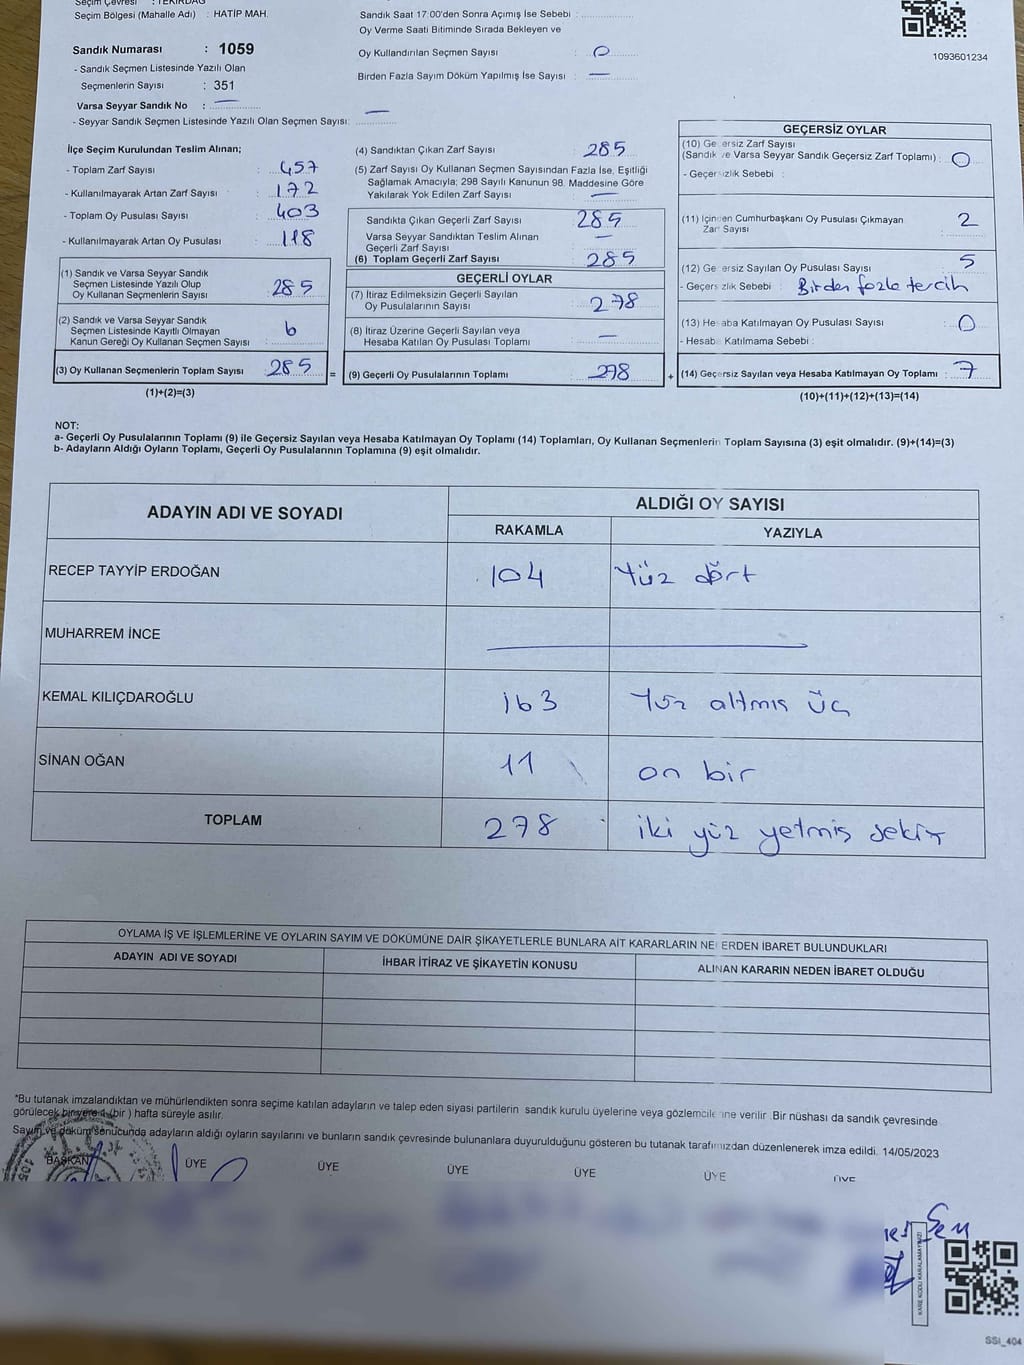 Seçim Çevresi : TEKİRDAĞ
Seçim Bölgesi (Mahalle Adı) : HATİP MAH.
Sandık Numarası : 1059
- Sandık Seçmen Listesinde Yazılı Olan
Seçmenlerin Sayısı : 351
Varsa Seyyar Sandık No : —
- Seyyar Sandık Seçmen Listesinde Yazılı Olan Seçmen Sayısı: —
Sandık Saat 17:00'den Sonra Açımış İse Sebebi :
Oy Verme Saati Bitiminde Sırada Bekleyen ve
Oy Kullandırılan Seçmen Sayısı : 0
Birden Fazla Sayım Döküm Yapılmış İse Sayısı : —
1093601234
İlçe Seçim Kurulundan Teslim Alınan;
- Toplam Zarf Sayısı : 457
- Kullanılmayarak Artan Zarf Sayısı : 172
- Toplam Oy Pusulası Sayısı : 403
- Kullanılmayarak Artan Oy Pusulası : 118
(1) Sandık ve Varsa Seyyar Sandık
Seçmen Listesinde Yazılı Olup
Oy Kullanan Seçmenlerin Sayısı : 285
(2) Sandık ve Varsa Seyyar Sandık
Seçmen Listesinde Kayıtlı Olmayan
Kanun Gereği Oy Kullanan Seçmen Sayısı :
(3) Oy Kullanan Seçmenlerin Toplam Sayısı : 285
(1)+(2)=(3)
(4) Sandıktan Çıkan Zarf Sayısı : 285
(5) Zarf Sayısı Oy Kullanan Seçmen Sayısından Fazla İse, Eşitliği
Sağlamak Amacıyla; 298 Sayılı Kanunun 98. Maddesine Göre
Yakılarak Yok Edilen Zarf Sayısı : —
Sandıkta Çıkan Geçerli Zarf Sayısı : 285
Varsa Seyyar Sandıktan Teslim Alınan
Geçerli Zarf Sayısı : —
(6) Toplam Geçerli Zarf Sayısı : 285
GEÇERLİ OYLAR
(7) İtiraz Edilmeksizin Geçerli Sayılan
Oy Pusulalarının Sayısı : 278
(8) İtiraz Üzerine Geçerli Sayılan veya
Hesaba Katılan Oy Pusulası Toplamı : —
= (9) Geçerli Oy Pusulalarının Toplamı : 278
GEÇERSİZ OYLAR
(10) Geçersiz Zarf Sayısı
(Sandık ve Varsa Seyyar Sandık Geçersiz Zarf Toplamı) : 0
- Geçersizlik Sebebi :
(11) İçinden Cumhurbaşkanı Oy Pusulası Çıkmayan
Zarf Sayısı : 2
(12) Geçersiz Sayılan Oy Pusulası Sayısı : 5
- Geçersizlik Sebebi : Birden fazle tercih
(13) Hesaba Katılmayan Oy Pusulası Sayısı : 0
- Hesaba Katılmama Sebebi :
+ (14) Geçersiz Sayılan veya Hesaba Katılmayan Oy Toplamı : 7
(10)+(11)+(12)+(13)=(14)
NOT:
a- Geçerli Oy Pusulalarının Toplamı (9) ile Geçersiz Sayılan veya Hesaba Katılmayan Oy Toplamı (14) Toplamları, Oy Kullanan Seçmenlerin Toplam Sayısına (3) eşit olmalıdır. (9)+(14)=(3)
b- Adayların Aldığı Oyların Toplamı, Geçerli Oy Pusulalarının Toplamına (9) eşit olmalıdır.
ADAYIN ADI VE SOYADI
ALDIĞI OY SAYISI
RAKAMLA YAZIYLA
RECEP TAYYİP ERDOĞAN 104 Yüz dört
MUHARREM İNCE —
KEMAL KILIÇDAROĞLU 163 Yüz altmış üç
SİNAN OĞAN 11 on bir
TOPLAM 278 iki yüz yetmiş sekiz
OYLAMA İŞ VE İŞLEMLERİNE VE OYLARIN SAYIM VE DÖKÜMÜNE DAİR ŞİKAYETLERLE BUNLARA AİT KARARLARIN NELERDEN İBARET BULUNDUKLARI
ADAYIN ADI VE SOYADI İHBAR İTİRAZ VE ŞİKAYETİN KONUSU ALINAN KARARIN NEDEN İBARET OLDUĞU
*Bu tutanak imzalandıktan ve mühürlendikten sonra seçime katılan adayların ve talep eden siyasi partilerin sandık kurulu üyelerine veya gözlemcilerine verilir. Bir nüshası da sandık çevresinde
görülecek bir yere 1 (bir) hafta süreyle asılır.
Sayım ve döküm sonucunda adayların aldığı oyların sayılarını ve bunların sandık çevresinde bulunanlara duyurulduğunu gösteren bu tutanak tarafımızdan düzenlenerek imza edildi. 14/05/2023
BAŞKAN ÜYE ÜYE ÜYE ÜYE ÜYE ÜYE
KARE KODU KARALAMAYINIZ!
SSİ_404